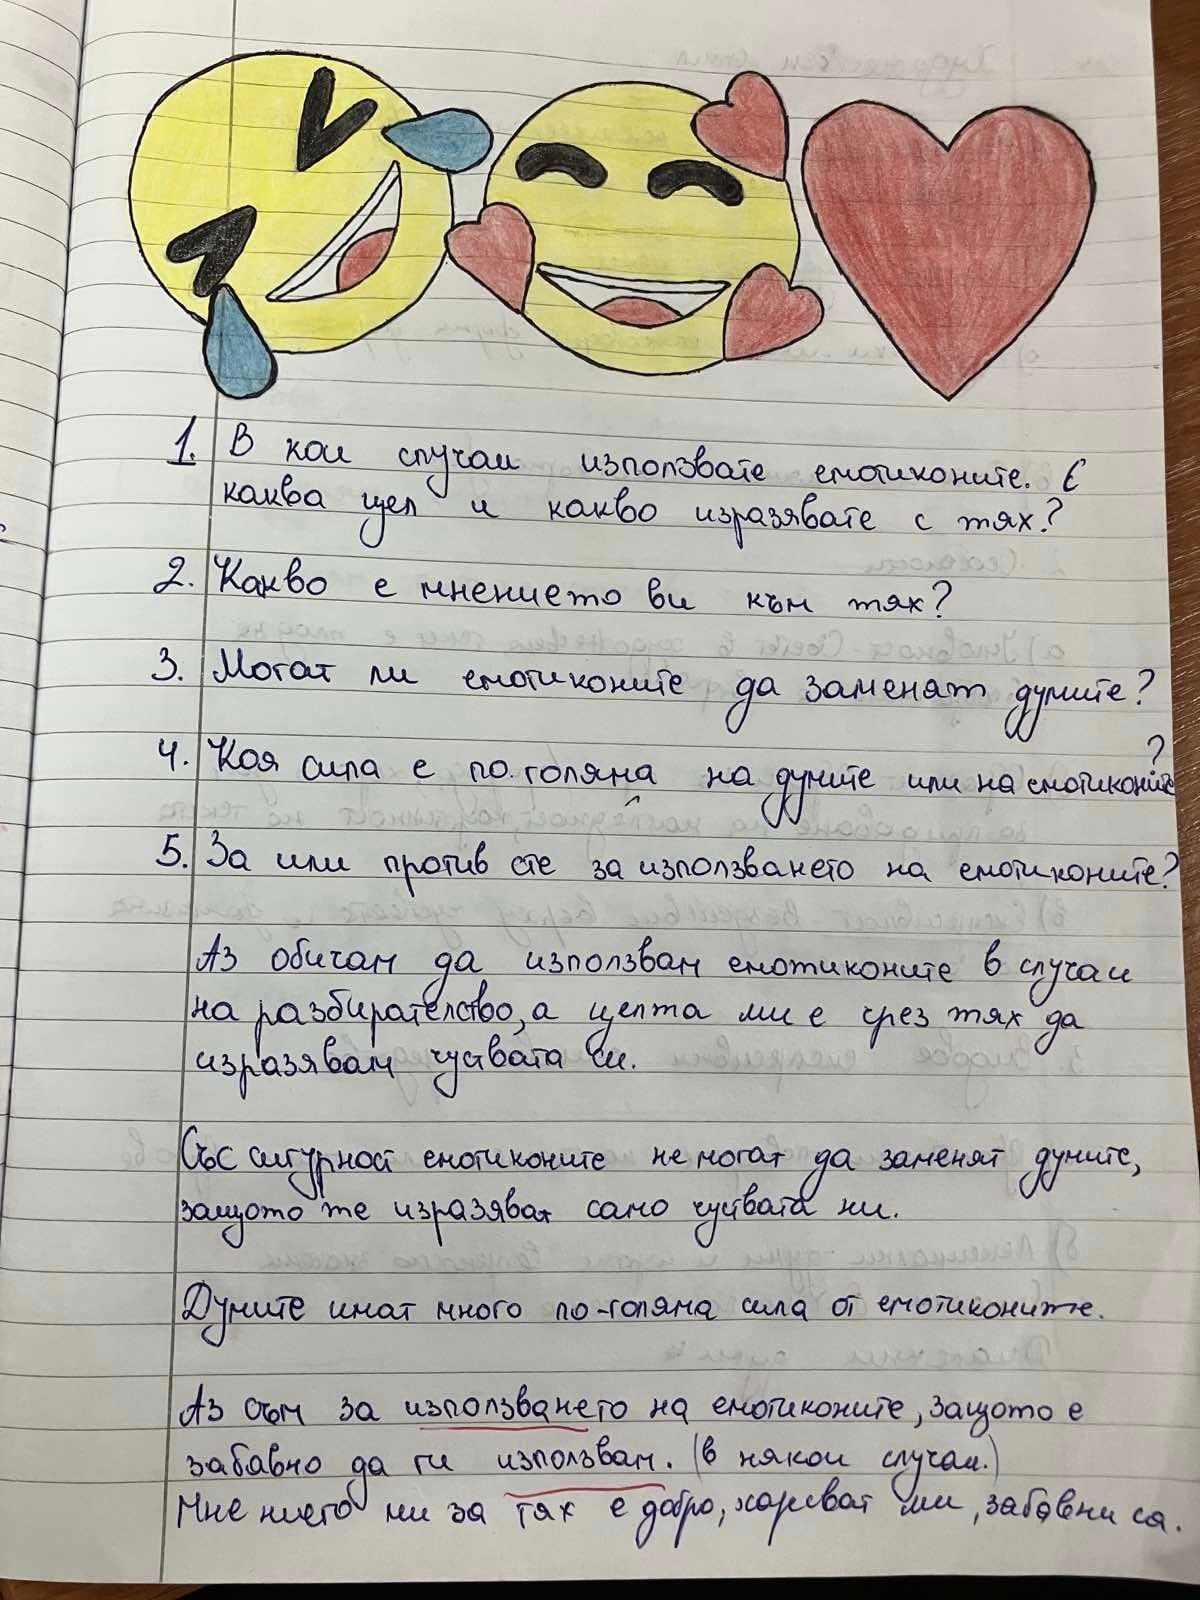 1. В кои случаи използвате емотиконите. С
каква цел и какво изразявате с тях?
2. Какво е мнението ви към тях?
3. Могат ли емотиконите да заменят думите?
4. Коя сила е по-голяма на думите или на емотиконите?
5. За или против сте за използването на емотиконите?
Аз обичам да използвам емотиконите в случаи
на разбирателство, а целта ми е чрез тях да
изразявам чуствата си.
Със сигурност емотиконите не могат да заменят думите,
защото те изразяват само чуствата ни.
Думите имат много по-голяма сила от емотиконите.
Аз съм за използването на емотиконите, защото е
забавно да ги използвам. (в някои случаи.)
Мнението ми за тях е добро, харесват ми, забавни са.